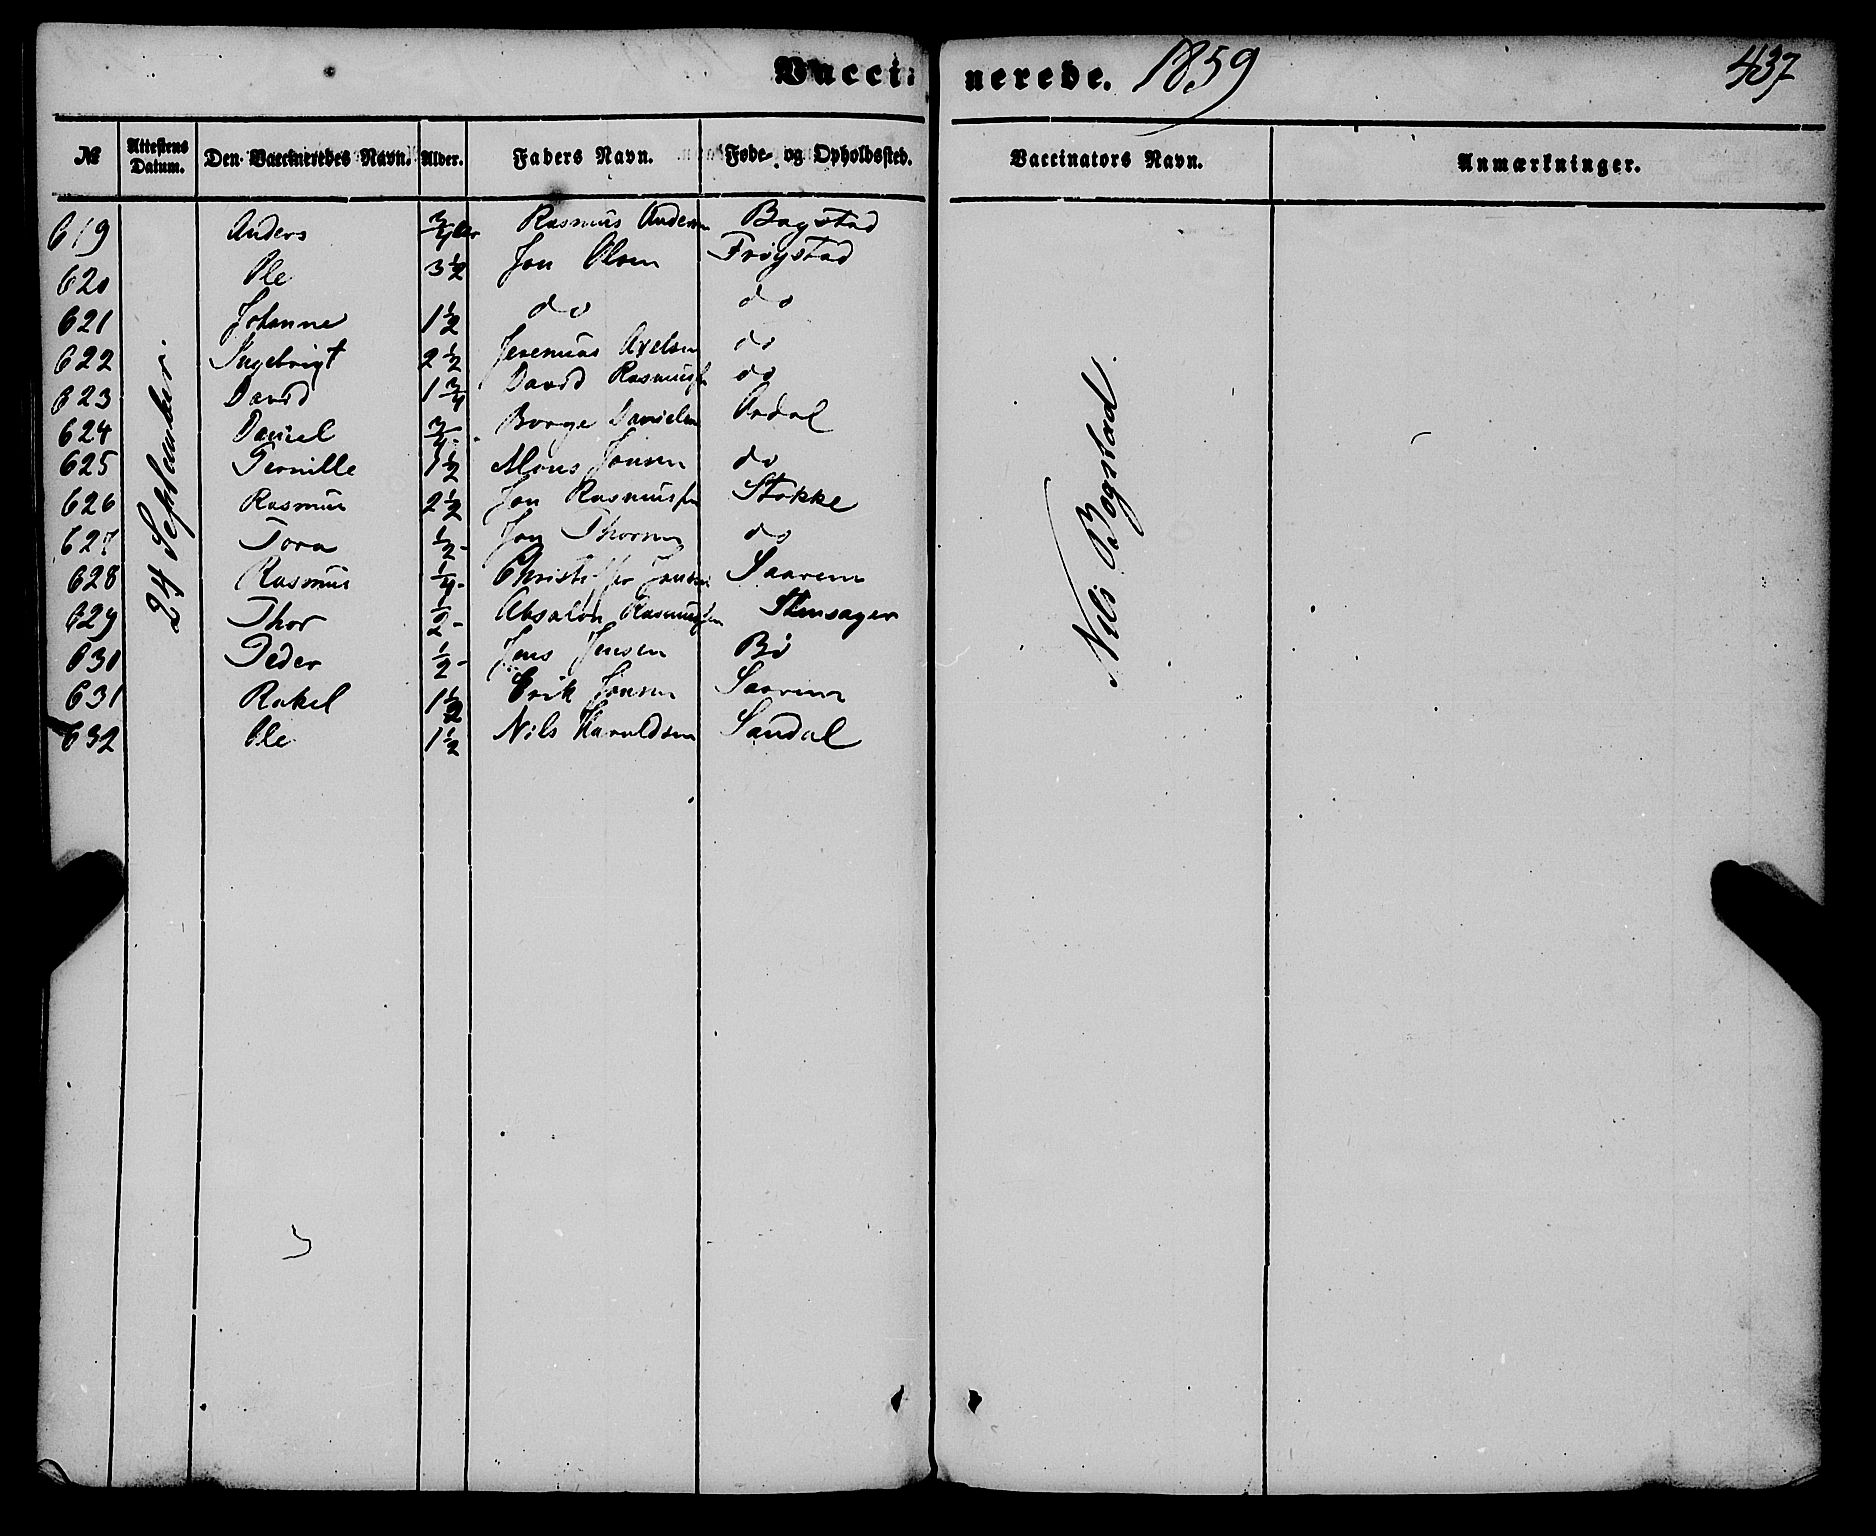 Vaccinerede. 1859 437
№ Attestens Datum. Den Vaccineredes Navn. Alder. Faders Navn. Føde- og Opholdssted. Vaccinators Navn. Anmærkninger.
24 September.
Nils Bogstad.
619 Anders 3/4 Rasmus Andersen Bogstad
620 Ole 3 1/2 Jon Olsen Frøystad
621 Johanne 1 1/2 do do
622 Ingebrigt 2 1/2 Jeremias Axelsen do
623 David 1 3/4 David Rasmussen do
624 Daniel 3/4 Børge Danielsen Årdal
625 Pernille 1 1/2 Mons Jonsen do
626 Rasmus 2 1/2 Jon Rasmussen Støkke
627 Tora 1/2 Jon Thorsen do
628 Rasmus 1/4 Christoffer Jensen Saarem
629 Thor 1/2 Absalon Rasmussen Stensager
630 Peder 1/2 Jens Jensen Bø
631 Rakel 1 1/2 Erik Jonsen Saarem
632 Ole 1 1/2 Nils Haraldsen Sandal